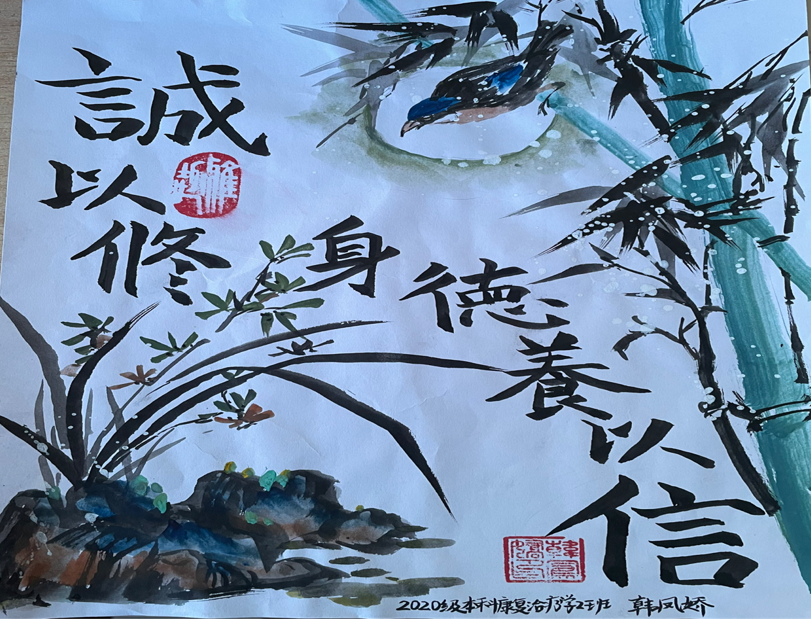 誠
以
修身
德
養
以
信
韓鳳嬌印
2020级本科康复治疗学2班 韩凤娇